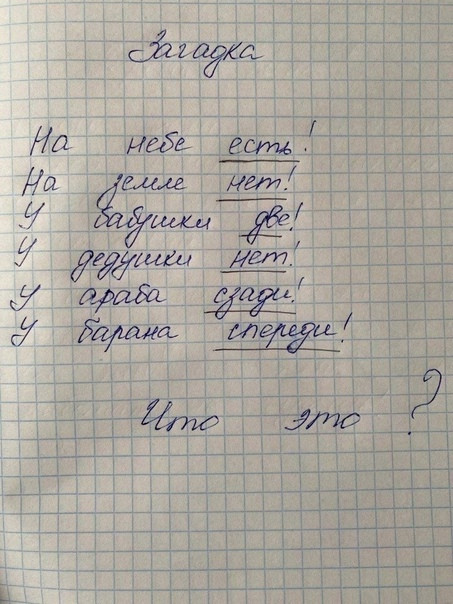 Загадка
На небе есть!
На земле нет!
У бабушки две!
У дедушки нет!
У араба сзади!
У барана спереди!
Что это?